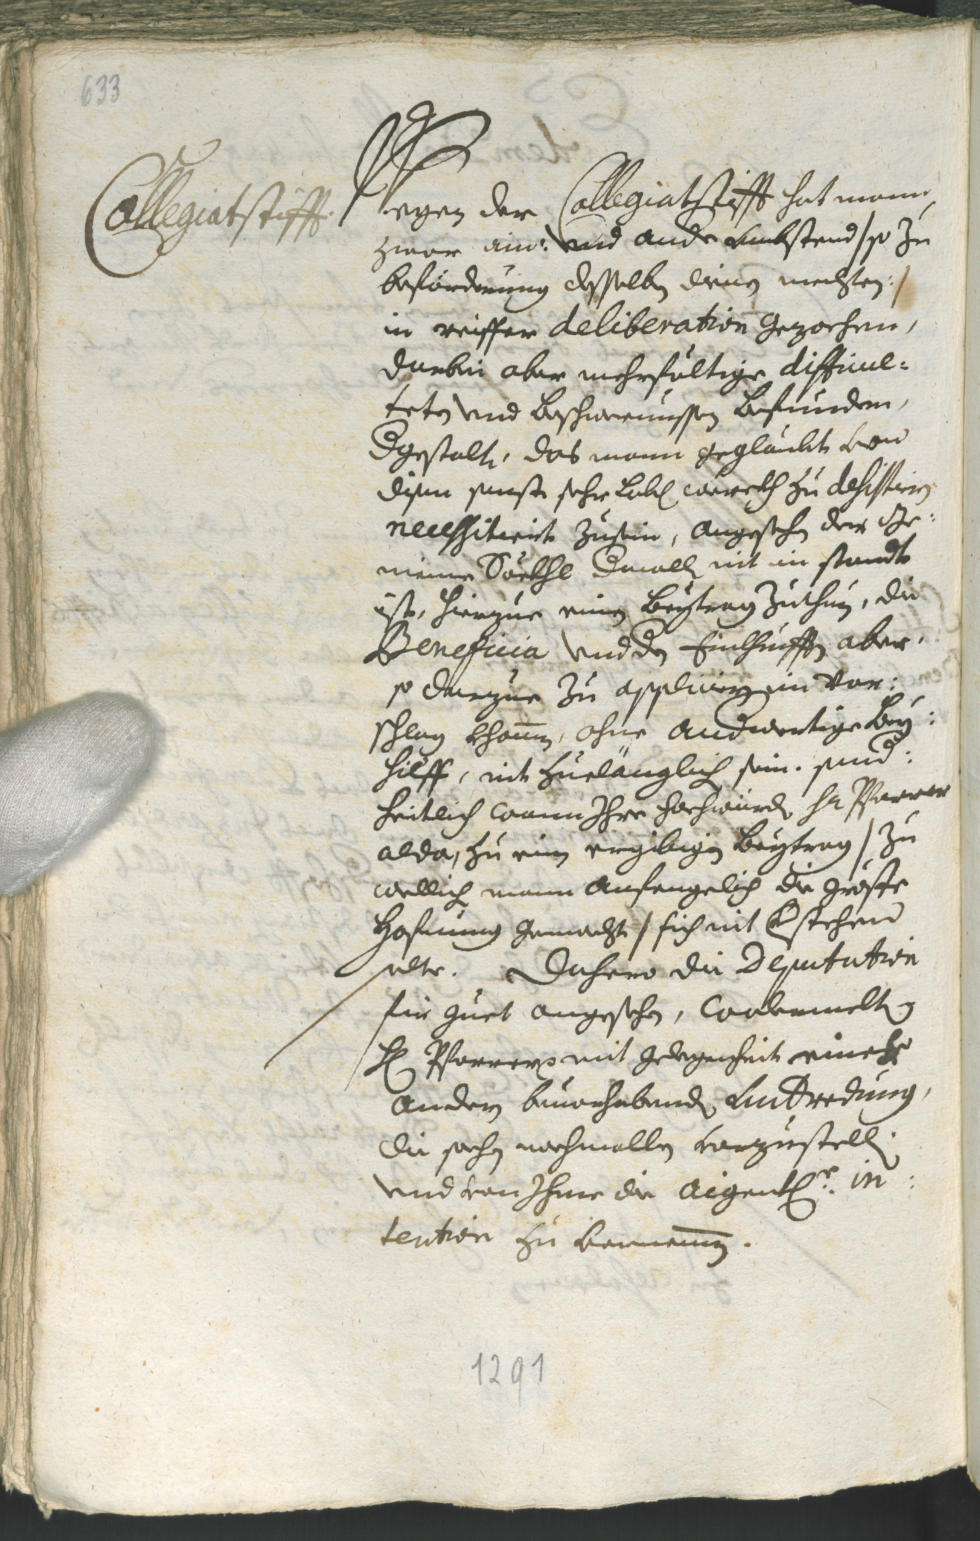 633
Collegiatstifft.
Wegen der Collegiatstifft hat mann,
zwar ain: vnd ande vmbstend /so zu
befürderung desselben dienen mechten:/
in reiffer deliberation gezochen,
darbei aber mehrfältige difficul=
teten vnd beschwernussen befunden,
dgestalt, das mann geglaubt von
disem sonst sehr lobl werckh zu desistiern
necessitiert zusein, angesehen der Ge=
meine Seckhl dmalln nit in standt
ist, hierzue einen beytrag zuthun, die
Beneficia vnd den Einkhünfften aber,
so darzue zu appliciern in vor:
schlag khomen, ohne andwertige bey:
hilff, nit zuelänglich sein. sond:
heitlich wann Ihre hochwürd hr Pfarrer
alda, zu ein ergibigen beytrag / zu
wellich mann anfengelich die gröste
hofnung gemacht / sich nit verstehen
solte. Dahero die Deputation
für guet angesehen, wolermelten
H Pfarrer mit gelegenheit eine
andern beuorhabend vnderedung,
die sachen nochmallen vorzustelln
vnd von Ihme die aigentler in:
tention zu vernemen.
1291